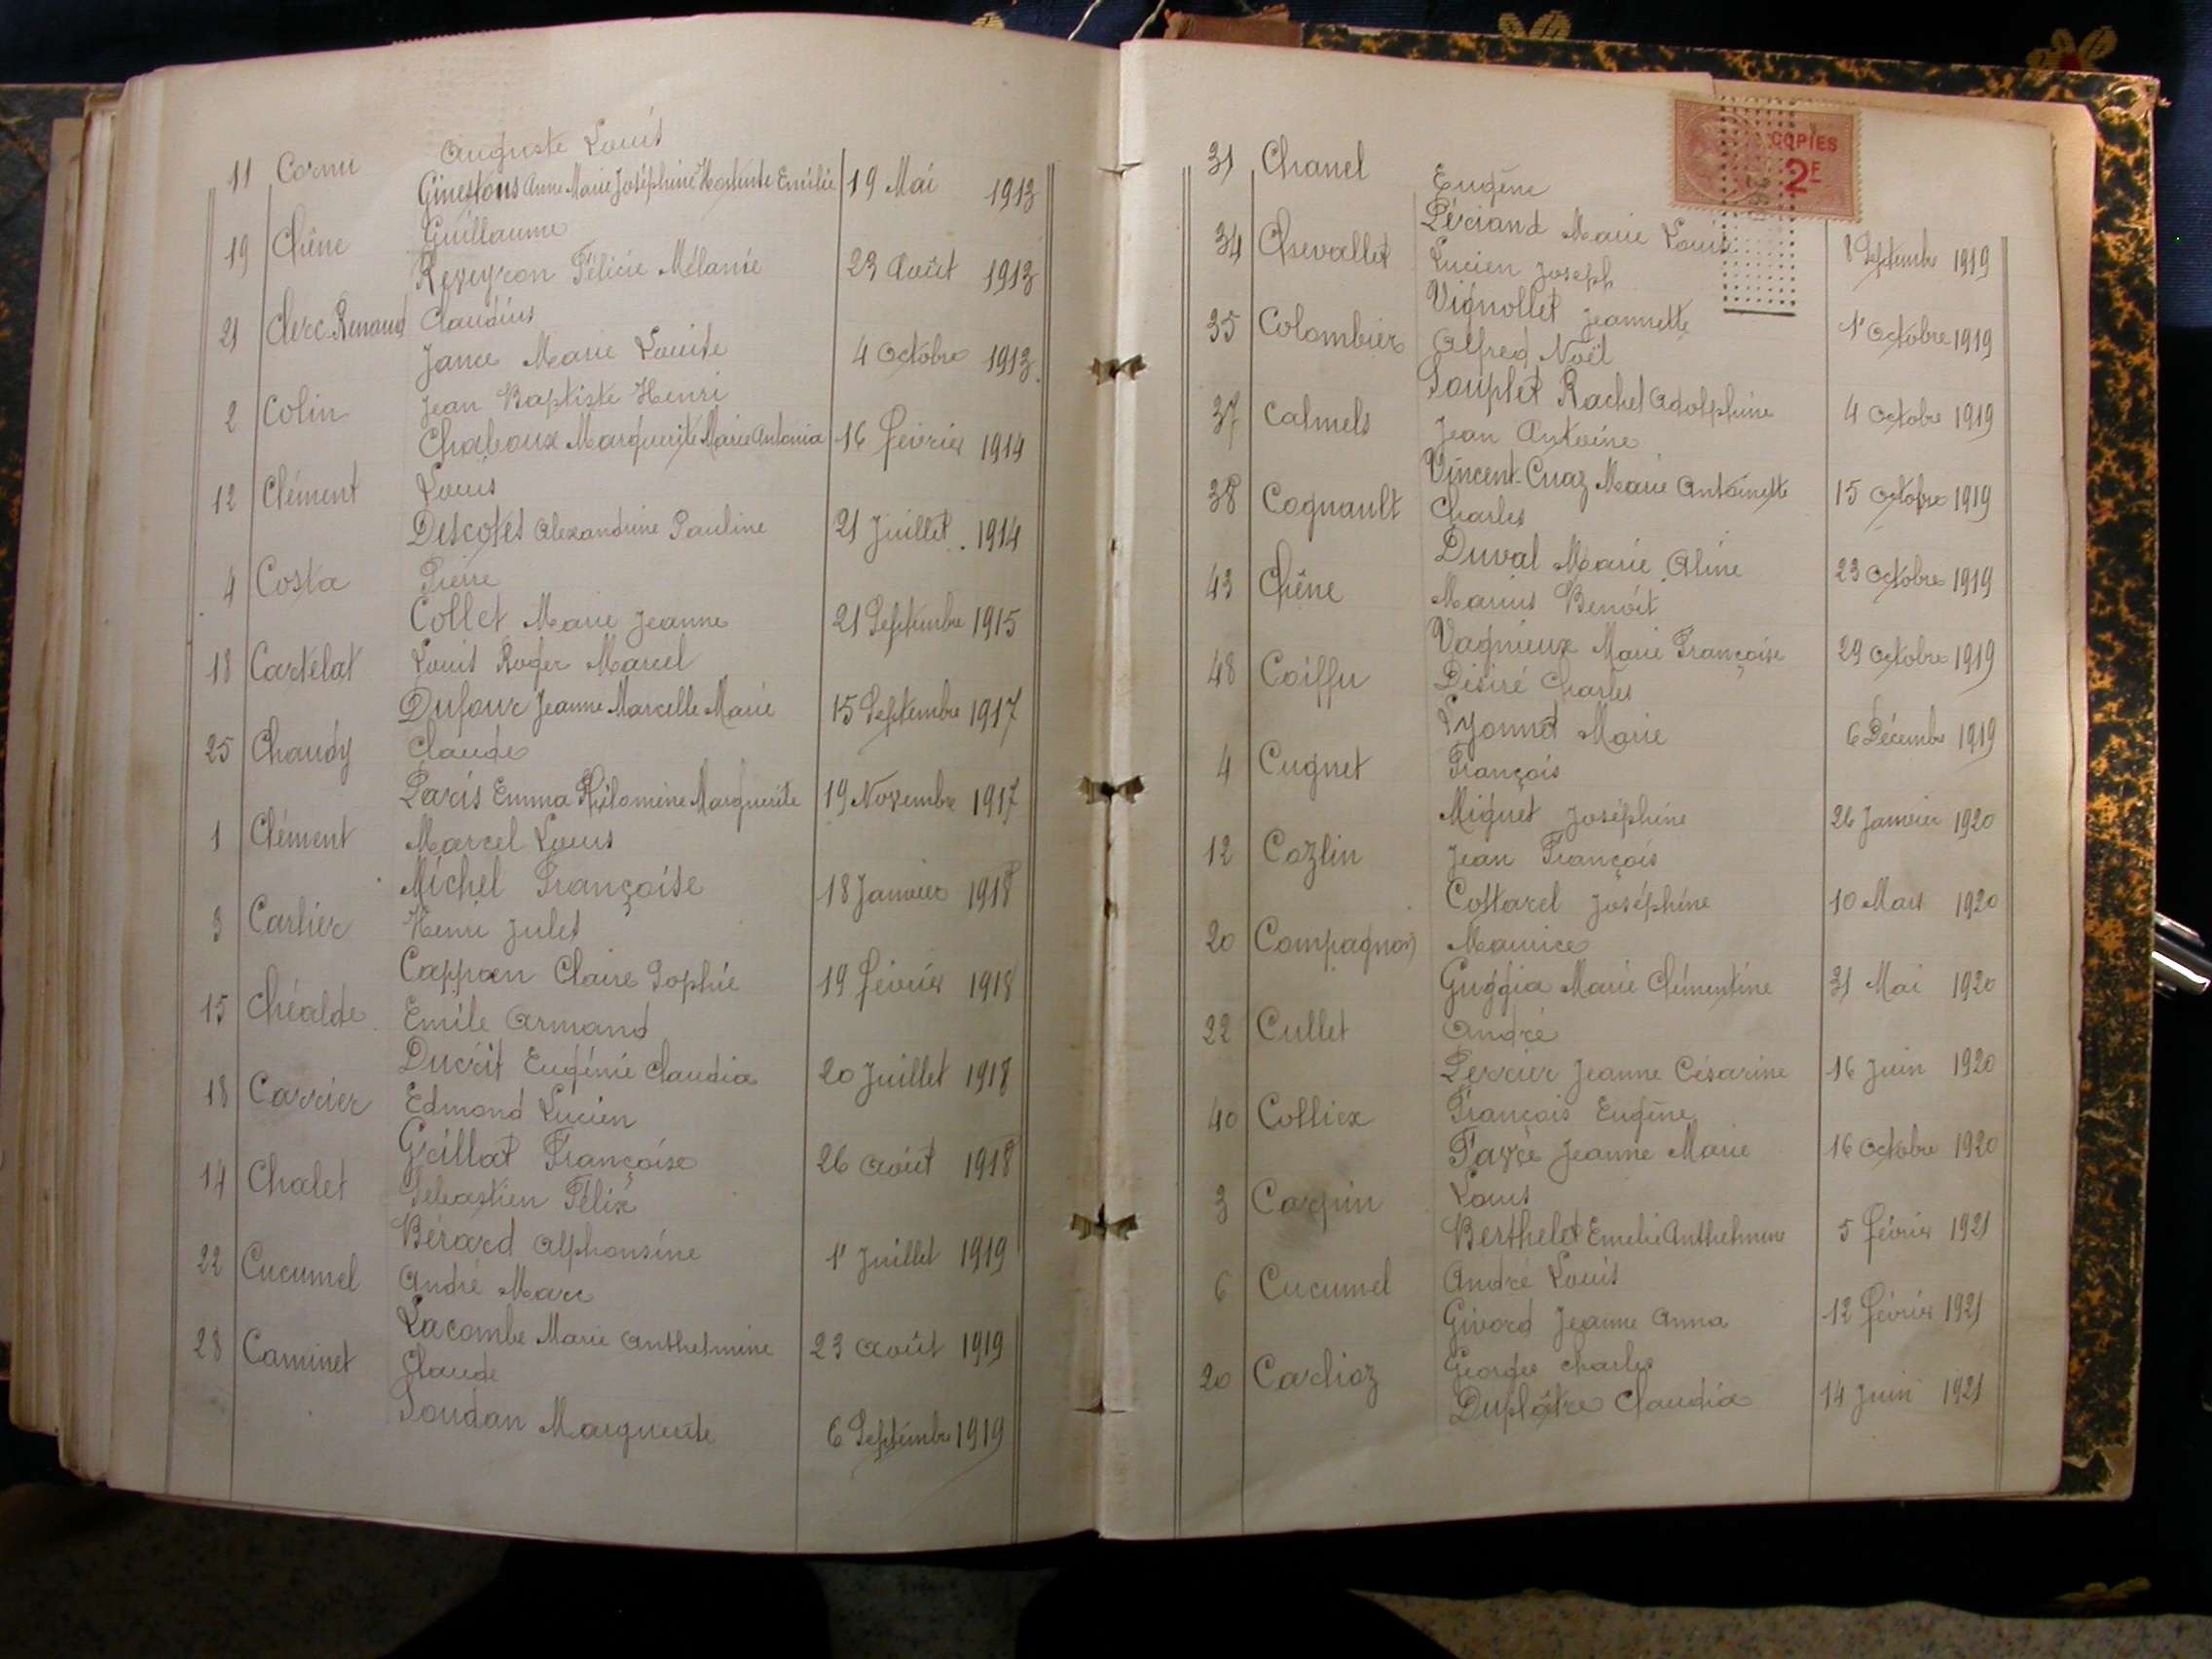 11 Cornu Auguste Louis
Ginestous Anne Marie Joséphine Hortense Emilie 19 Mai 1913
19 Chêne Guillaume
Reveyron Félicie Mélanie 23 Août 1913
21 Clerc-Renaud Claudius
Jance Marie Louise 4 Octobre 1913
2 Colin Jean Baptiste Henri
Chaboux Marguerite Marie Antonia 16 février 1914
12 Clément Louis
Descotes Alexandrine Pauline 21 Juillet 1914
4 Costa Pierre
Collet Marie Jeanne 21 Septembre 1915
18 Cartelat Louis Roger Marcel
Dufour Jeanne Marcelle Marie 15 Septembre 1917
25 Chaudy Claude
Paris Emma Philomène Marguerite 19 Novembre 1917
1 Clément Marcel Louis
Michel Françoise 18 Janvier 1918
3 Carlier Henri Jules
Cappoen Claire Sophie 19 février 1918
15 Chéalde Emile Armand
Ducrit Eugénie Claudia 20 Juillet 1918
18 Carrier Edmond Lucien
Grillat Françoise 26 Août 1918
14 Chalet Sébastien Félix
Bérard Alphonsine 1r Juillet 1919
22 Cucumel André Marc
Lacombe Marie Anthelmine 23 Août 1919
28 Caminet Claude
Soudan Marguerite 6 Septembre 1919
COPIES
2F
31 Chanel Eugène
Périand Marie Louise 8 Septembre 1919
34 Chevallet Lucien Joseph
Vignollet Jeannette 1r Octobre 1919
35 Colombier Alfred Noël
Souplet Rachel Adolphine 4 Octobre 1919
37 Calmels Jean Antoine
Vincent-Cuaz Marie Antoinette 15 Octobre 1919
38 Cognault Charles
Duval Marie Aline 23 Octobre 1919
43 Chêne Marius Benoit
Vagnieux Marie Françoise 29 Octobre 1919
48 Coiffu Désiré Charles
Lyonnet Marie 6 Décembre 1919
4 Cugnet François
Miguet Joséphine 26 Janvier 1920
12 Cozlin Jean François
Costarel Joséphine 10 Mars 1920
20 Compagnon Maurice
Guggia Marie Clémentine 31 Mai 1920
22 Cullet André
Perrier Jeanne Césarine 16 Juin 1920
40 Colliex François Eugène
Favre Jeanne Marie 16 Octobre 1920
3 Carpin Louis
Berthelet Emelie Anthelmine 5 février 1921
6 Cucumel André Louis
Givord Jeanne Anna 12 février 1921
20 Carlioz Georges Charles
Duplâtre Claudia 14 Juin 1921